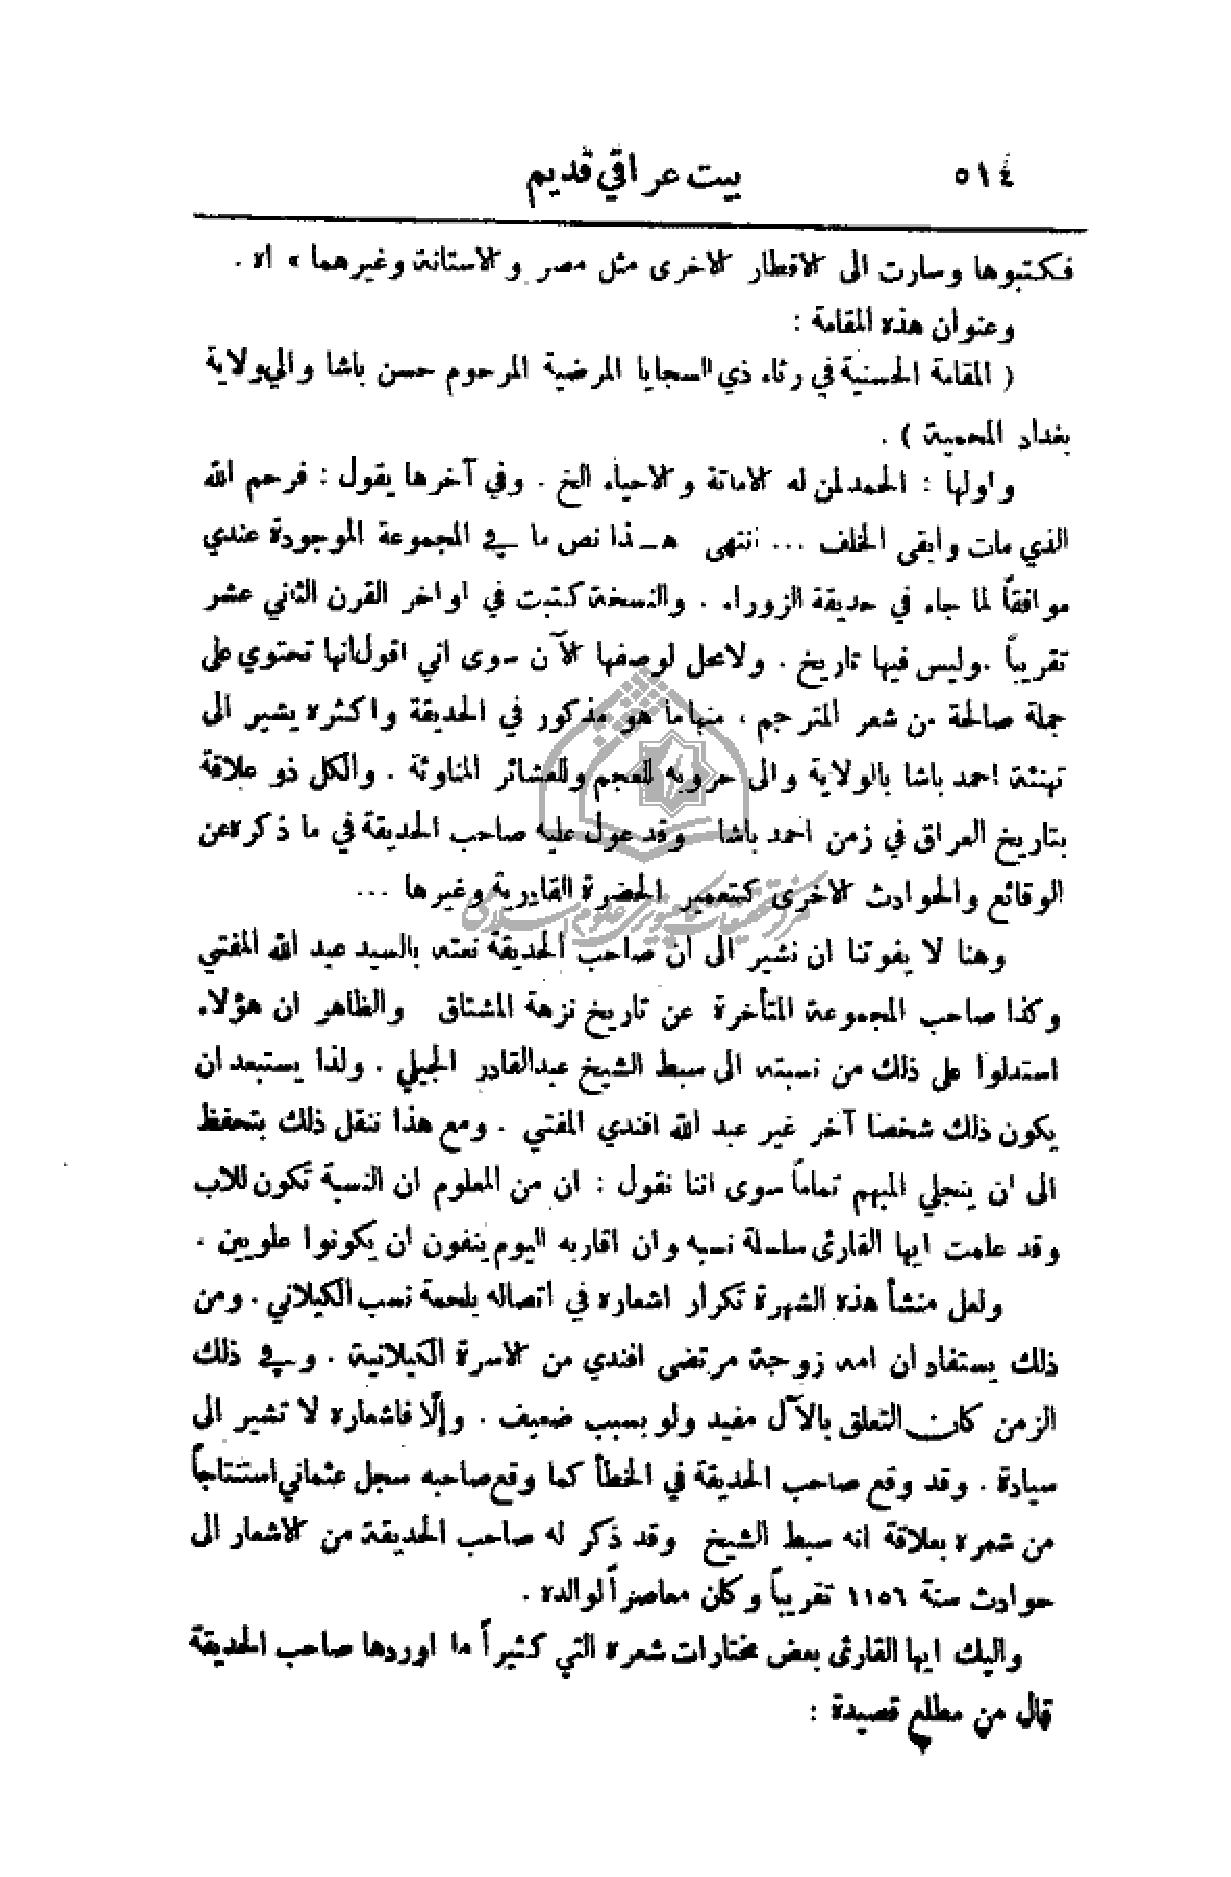 ٥١٤ بيت عراقي قديم
فكتبوها وسارت الى الاقطار الاخرى مثل مصر والاستانة وغيرهما » اه .
وعنوان هذه المقامة :
( المقامة الحسنية في رثاء ذي السجايا المرضية المرحوم حسن باشا والي ولاية
بغداد المحمية ) .
واولها : الحمد لمن له الاماتة والاحياء الخ . وفي آخرها يقول : فرحم الله
الذي مات وابقى الخلف ... انتهى هـذا نص ما في المجموعة الموجودة عندي
موافقاً لما جاء في حديقة الزوراء . والنسخة كتبت في اواخر القرن الثاني عشر
تقريباً . وليس فيها تاريخ . ولا محل لوصفها الآن سوى اني اقول انها تحتوي على
جملة صالحة من شعر المترجم ، منها ما هو مذكور في الحديقة واكثره يشير الى
تهنئة احمد باشا بالولاية والى حروبه للعجم وللعشائر المناوئة . والكل ذو علاقة
بتاريخ العراق في زمن احمد باشا وقد عول عليه صاحب الحديقة في ما ذكره عن
الوقائع والحوادث الاخرى كتعمير الحضرة القادرية وغيرها ...
وهنا لا يفوتنا ان نشير الى ان صاحب الحديقة نعته بالسيد عبد الله المفتي
وكذا صاحب المجموعة المتأخرة عن تاريخ نزهة المشتاق والظاهر ان هؤلاء
استدلوا على ذلك من نسبته الى سبط الشيخ عبدالقادر الجيلي . ولذا يستبعد ان
يكون ذلك شخصا آخر غير عبد الله افندي المفتي . ومع هذا ننقل ذلك بتحفظ
الى ان ينجلي المبهم تماماً سوى اننا نقول : ان من المعلوم ان النسبة تكون للاب
وقد علمت ايها القارئ سلسلة نسبه وان اقاربه اليوم ينفون ان يكونوا علويين .
ولعل منشأ هذه الشهرة تكرار اشعاره في اتصاله بلحمة نسب الكيلاني . ومن
ذلك يستفاد ان امه زوجة مرتضى افندي من الاسرة الكيلانية . وفي ذلك
الزمن كان التعلق بالآل مفيد ولو بسبب ضعيف . وإلّا فاشعاره لا تشير الى
سيادة . وقد وقع صاحب الحديقة في الخطأ كما وقع صاحبه سجل عثماني استنتاجاً
من شعره بعلاقة انه سبط الشيخ وقد ذكر له صاحب الحديقة من الاشعار الى
حوادث سنة ١١٥٦ تقريباً وكان معاصراً لوالده .
واليك ايها القارئ بعض مختارات شعره التي كثيراً ما اوردها صاحب الحديقة
قال من مطلع قصيدة :